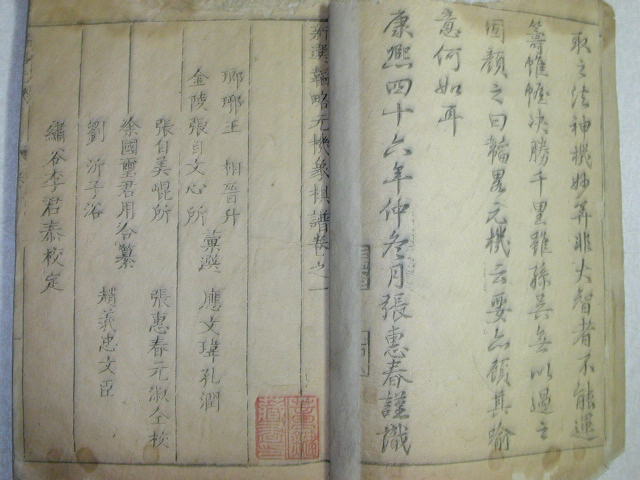 取之法神機妙算非大智者不能運
籌帷幄决勝千里雖孫吳無以過之
因顏之曰韜畧元機云耍亦顧其喻
意何如耳
康熙四十六年仲冬月張惠春謹識
新選韜略元機象棋譜卷之一
瑯琊王 相晉升 應文瑋孔潤
金陵張自文心所 彙選
張自美焜所 張惠春元淑仝校
徐國璽君用仝纂
劉 沂子浴 趙義忠文臣
繡谷李君泰校定